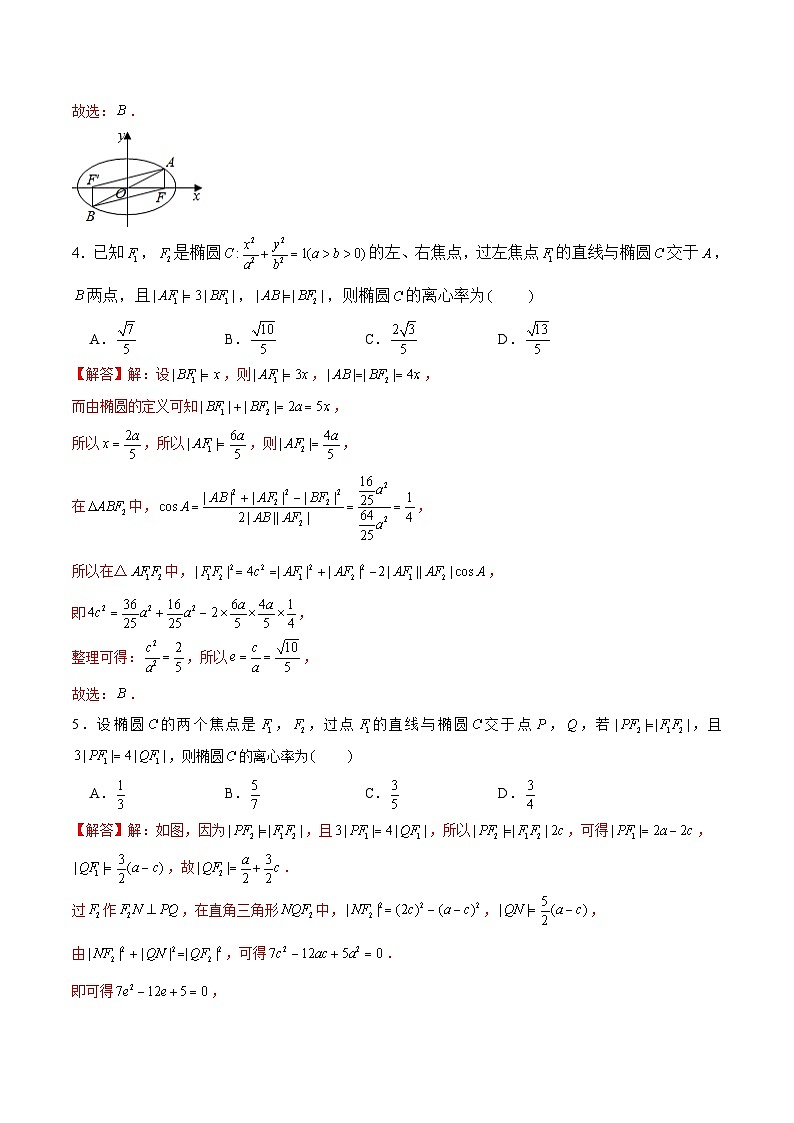 故选：B．
y
A
F'
O
F
x
B
4．已知F₁，F₂是椭圆C:x²/a²+y²/b²=1(a>b>0)的左、右焦点，过左焦点F₁的直线与椭圆C交于A，
B两点，且|AF₁|=3|BF₁|，|AB|=|BF₂|，则椭圆C的离心率为(　　)
A．√7/5 B．√10/5 C．2√3/5 D．√13/5
【解答】解：设|BF₁|=x，则|AF₁|=3x，|AB|=|BF₂|=4x，
而由椭圆的定义可知|BF₁|+|BF₂|=2a=5x，
所以x=2a/5，所以|AF₁|=6a/5，则|AF₂|=4a/5，
在ΔABF₂中，cosA=(|AB|²+|AF₂|²−|BF₂|²)/(2|AB||AF₂|)=(16/25a²)/(64/25a²)=1/4，
所以在△AF₁F₂中，|F₁F₂|²=4c²=|AF₁|²+|AF₂|²−2|AF₁||AF₂|cosA，
即4c²=36/25a²+16/25a²−2×6a/5×4a/5×1/4，
整理可得：c²/a²=2/5，所以e=c/a=√10/5，
故选：B．
5．设椭圆C的两个焦点是F₁，F₂，过点F₁的直线与椭圆C交于点P，Q，若|PF₂|=|F₁F₂|，且
3|PF₁|=4|QF₁|，则椭圆C的离心率为(　　)
A．1/3 B．5/7 C．3/5 D．3/4
【解答】解：如图，因为|PF₂|=|F₁F₂|，且3|PF₁|=4|QF₁|，所以|PF₂|=|F₁F₂|2c，可得|PF₁|=2a−2c，
|QF₁|=3/2(a−c)，故|QF₂|=a/2+3/2c．
过F₂作F₂N⊥PQ，在直角三角形NQF₂中，|NF₂|²=(2c)²−(a−c)²，|QN|=5/2(a−c)，
由|NF₂|²+|QN|²=|QF₂|²，可得7c²−12ac+5a²=0．
即可得7e²−12e+5=0，